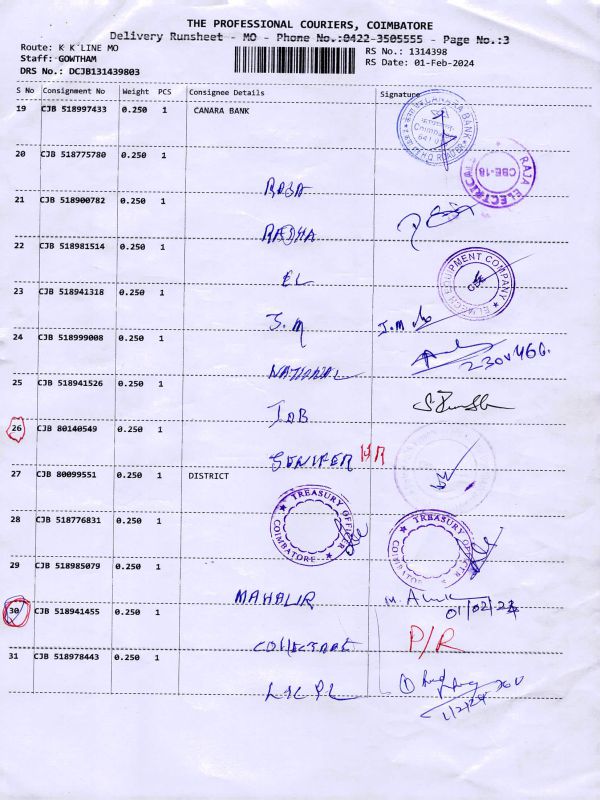 THE PROFESSIONAL COURIERS, COIMBATORE
Delivery Runsheet - MO - Phone No.:0422-3505555 - Page No.:3
Route: K K LINE MO
RS No.: 1314398
Staff: GOWTHAM
RS Date: 01-Feb-2024
DRS No.: DCJB131439803
S No Consignment No Weight PCS Consignee Details Signature
19 CJB 518997433 0.250 1 CANARA BANK
CANARA BANK
20 CJB 518775780 0.250 1
RAJA
RAJA ELECTRICAL CBE-18
21 CJB 518900782 0.250 1
RADHA
22 CJB 518981514 0.250 1
EL
EQUIPMENT COMPANY
CBE
23 CJB 518941318 0.250 1
J.M
J.M
24 CJB 518999008 0.250 1
NATIONAL
25 CJB 518941526 0.250 1
IOB
26 CJB 80140549 0.250 1
JENIFER HR
27 CJB 80099551 0.250 1 DISTRICT
TREASURY OFFICER
COIMBATORE
28 CJB 518776831 0.250 1
TREASURY OFFICER
29 CJB 518985079 0.250 1
MAHALIR
01/02/24
30 CJB 518941455 0.250 1
P/R
31 CJB 518978443 0.250 1
1/2/24